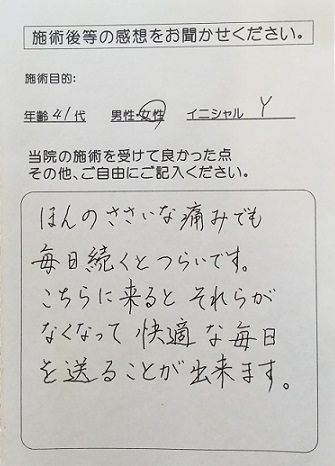 施術後等の感想をお聞かせください。
施術目的:
年齢 41代 男性・女性 イニシャル Y
当院の施術を受けて良かった点
その他、ご自由にご記入ください。
ほんのささいな痛みでも
毎日続くとつらいです。
こちらに来ると それらが
なくなって 快適な毎日
を送ることが出来ます。